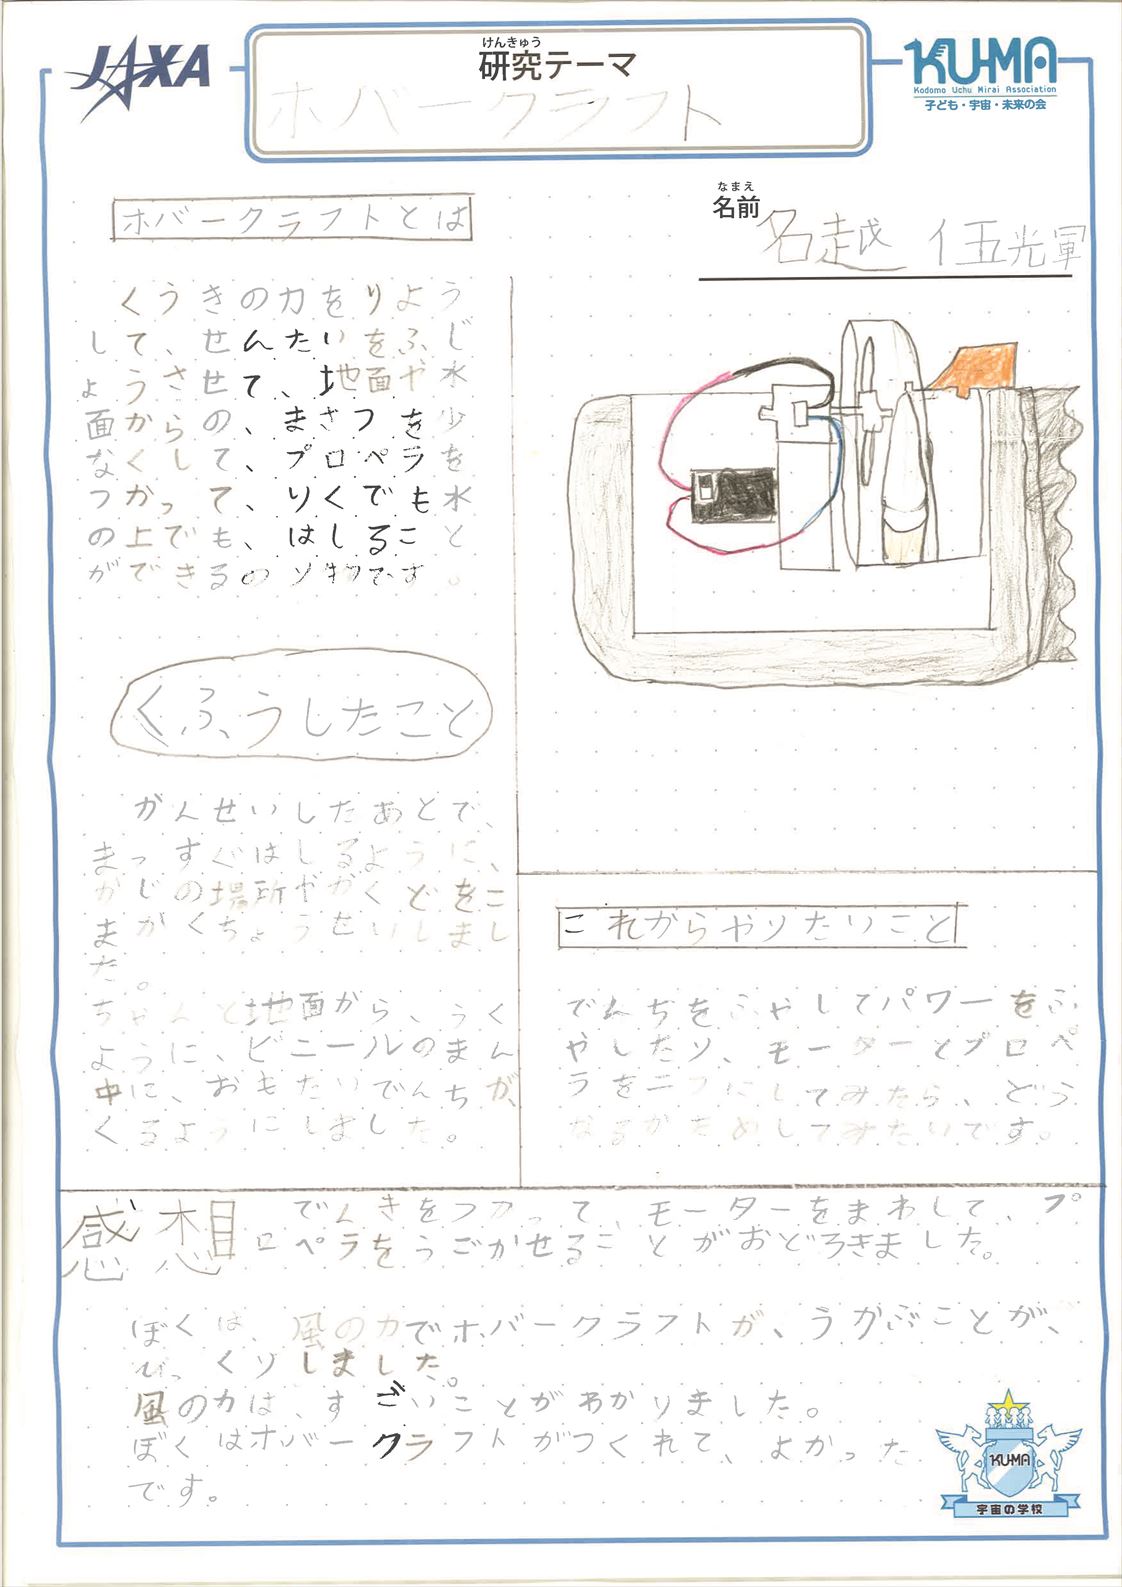 JAXA
けんきゅう
研究テーマ
ホバークラフト
KU-MA
Kodomo Uchu Mirai Association
子ども・宇宙・未来の会
なまえ
名前
名越 伍光軍
ホバークラフトとは
くうきの力をりよう
して、せんたいをふじ
ようさせて、地面や水
面からの、まさつを少
なくして、プロペラを
つかって、りくでも水
の上でも、はしること
ができるのり物です。
くふうしたこと
がんせいしたあとで、
まっすぐはしるように、
かじの場所やかくどをこ
まかくちょうせいしまし
た。
ちゃんと地面から、うく
ように、ビニールのまん
中に、おもたいでんちが、
くるようにしました。
これからやりたいこと
でんちをふやしてパワーをふ
やしたり、モーターとプロペ
ラを二つにしてみたら、どう
なるかためしてみたいです。
感想
でんきをつかって、モーターをまわして、プ
ロペラをうごかせることがおどろきました。
ぼくは、風の力でホバークラフトが、うかぶことが、
びっくりしました。
風の力は、すごいことがわかりました。
ぼくはホバークラフトがつくれて、よかった
です。
KU-MA
宇宙の学校